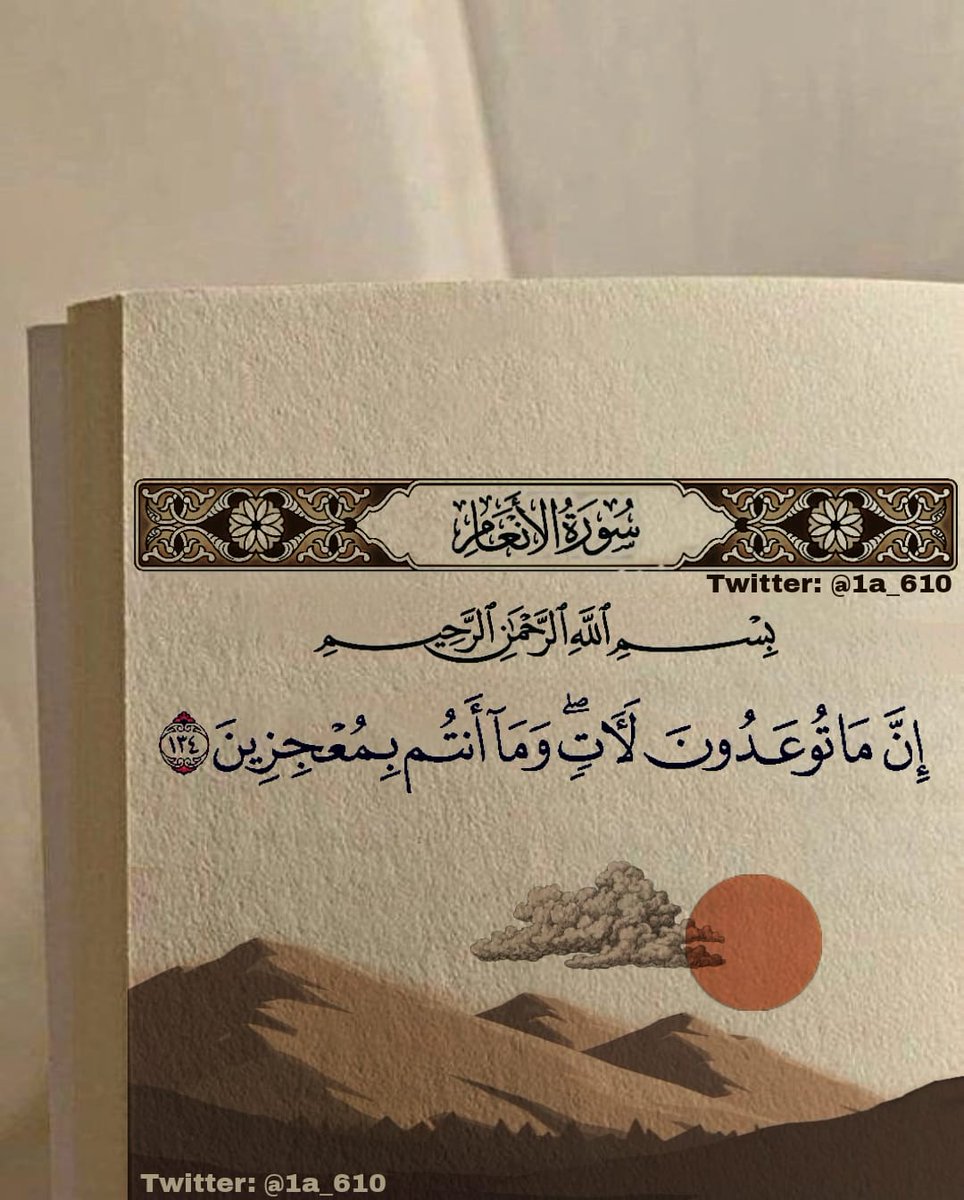 سُورَةُ الأَنْعَامِ
Twitter: @1a_610
بِسْمِ ٱللَّهِ ٱلرَّحْمَٰنِ ٱلرَّحِيمِ
إِنَّ مَا تُوعَدُونَ لَأٓتٖۖ وَمَآ أَنتُم بِمُعْجِزِينَ ١٣٤
Twitter: @1a_610